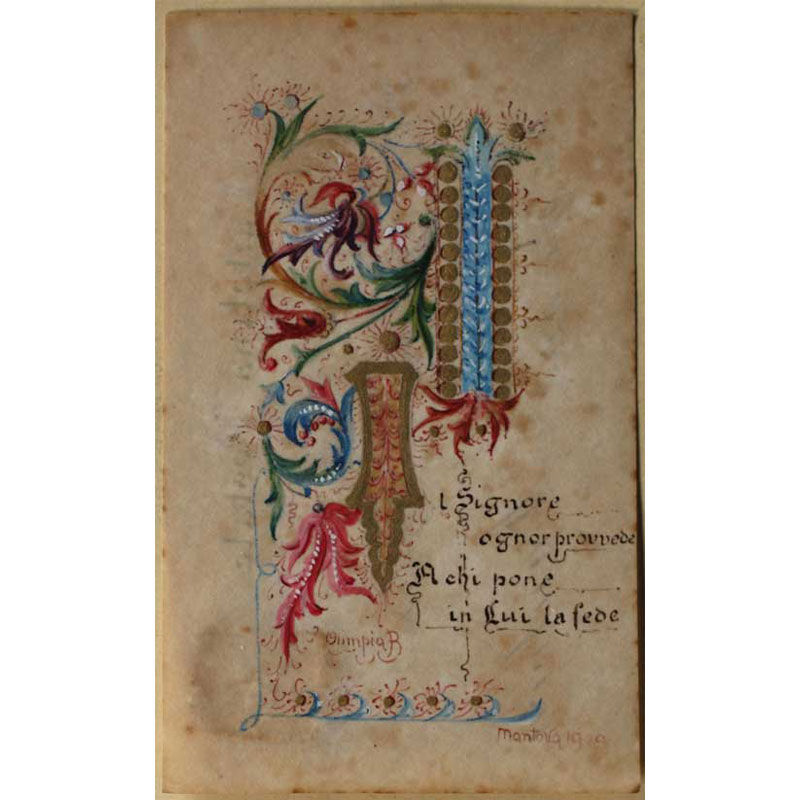 Il Signore
ognor provvede
A chi pone
in Lui la fede
Olimpia
Mantova